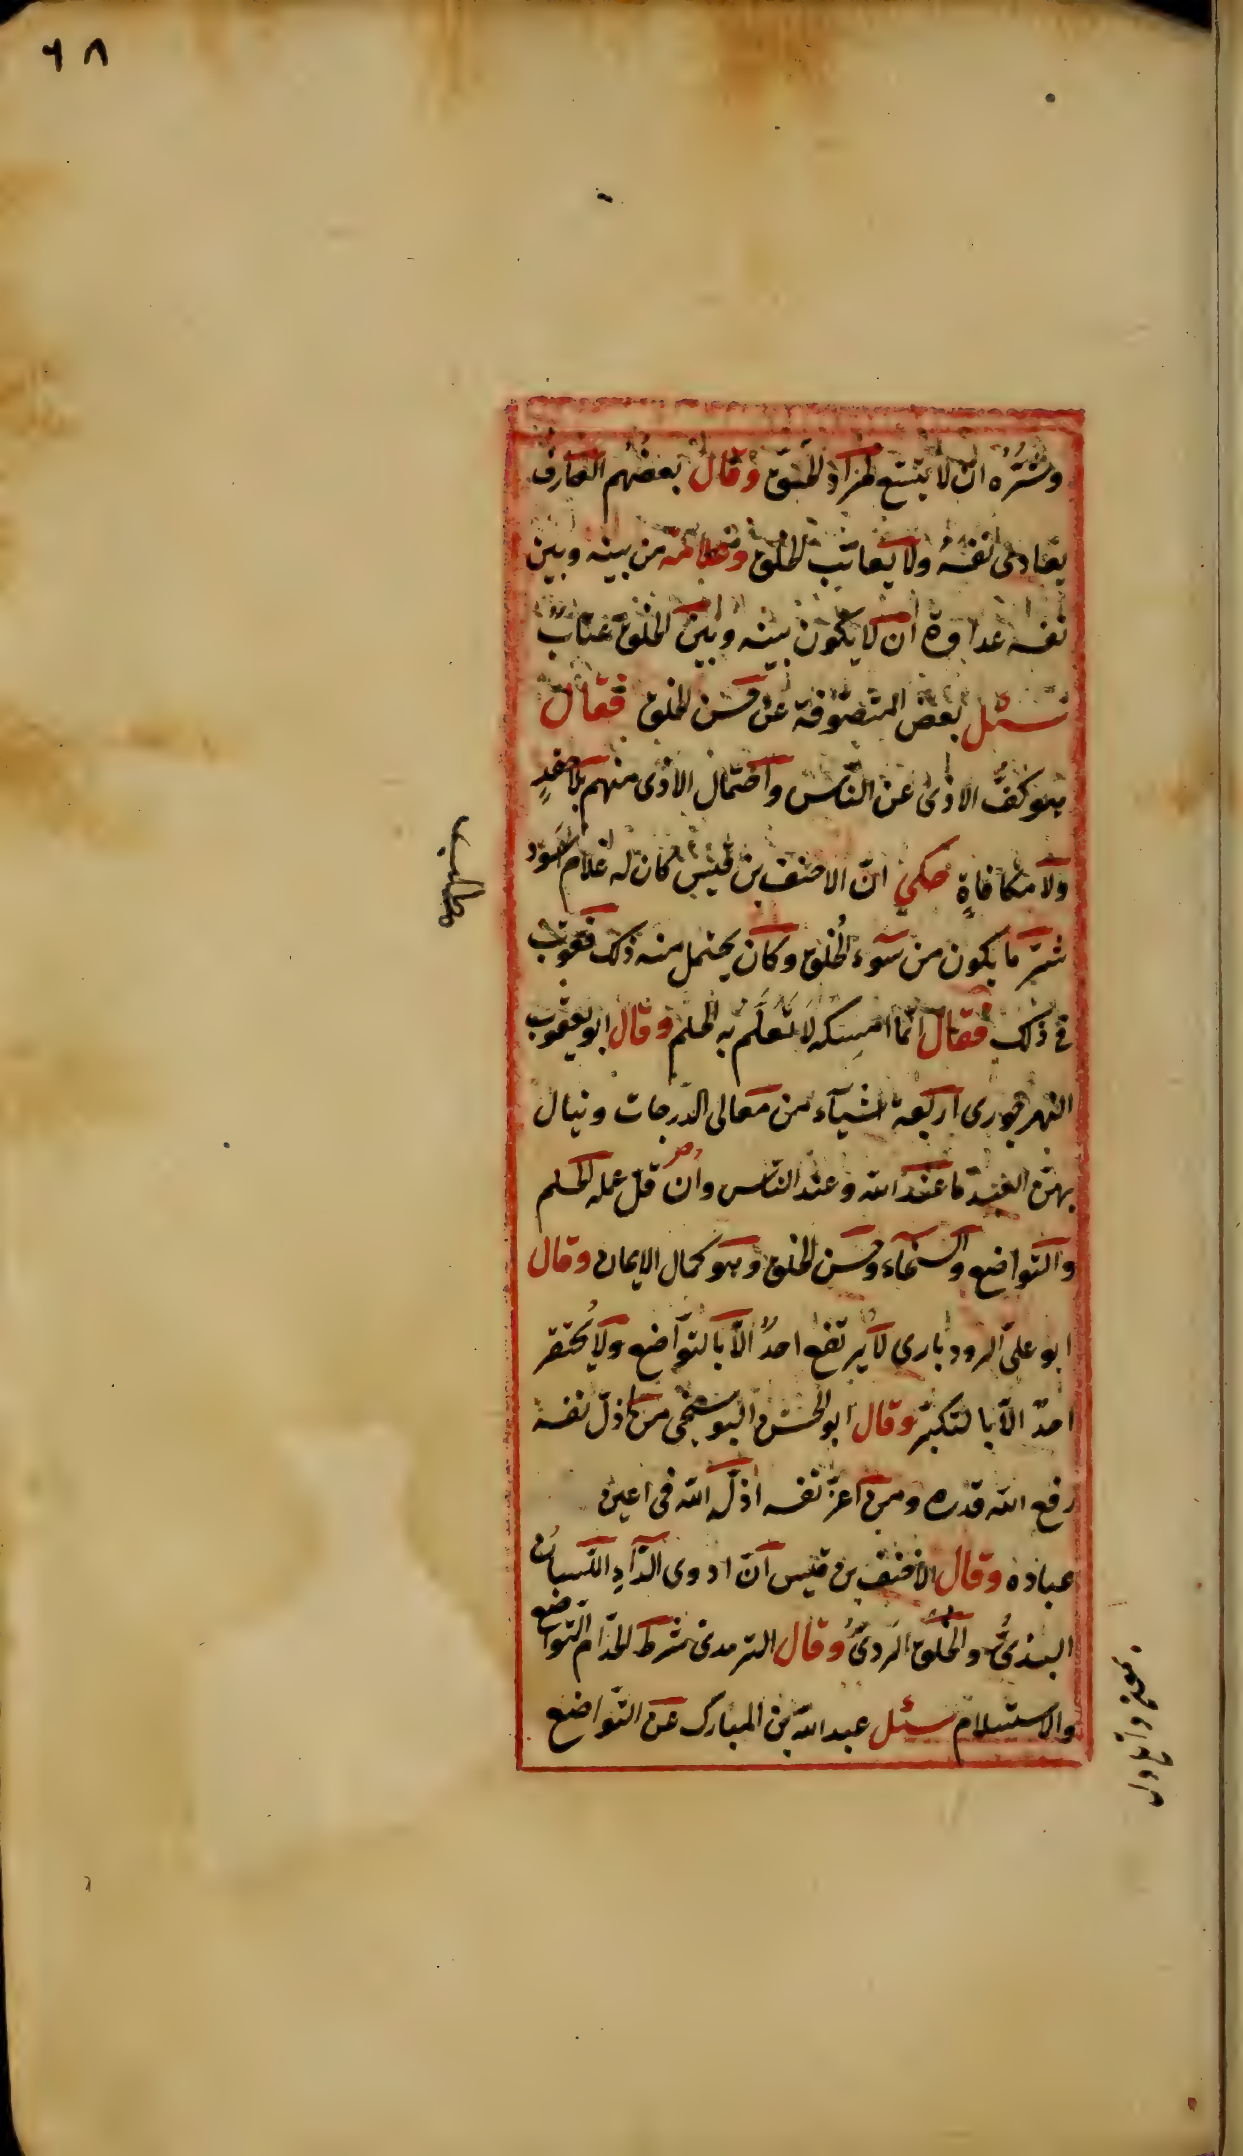 ٦٨
وستره ان لا يتسع لمراد الخلق وقال بعضهم العارف
يعادى نفسه ولا يعاتب الخلق وعلامة من بينه وبين
نفسه عداوة ان لا يكون بينه وبين الخلق عتاب
سئل بعض المتصوفة عن حسن الخلق فقال
هو كفّ الاذى عن الناس واحتمال الاذى منهم بلا حقدٍ
ولا مكافاةٍ حكي انّ الاحنف بن قيس كان له غلام اسود
شرّ ما يكون من سوء الخُلق وكان يحتمل منه ذلك فعوتب
في ذلك فقال انما امسكه لاتعلّم به الحلم وقال ابو يعقوب
النهرجورى اربعة اشيآء من معالى الدرجات وينال
بهنّ العبد ما عند الله وعند الناس وان قلّ عمله الحلم
والتواضع والسخآء وحسن الخلق وهو كمال الايمان وقال
ابو علىّ الرودبارى لا يرتفع احدٌ الّا بالتواضع ولا يُحتقر
احدٌ الّا بالتكبّر وقال ابو الحسن البوشنجى من اذلّ نفسه
رفع الله قدره ومن اعزّ نفسه اذلّه الله فى اعين
عباده وقال الاحنف بن قيس انّ ادوى الدّاء اللّسان
البذىُّ والخُلق الرّدىُّ وقال الترمدى شرط الخدّام التواضع
والاستسلام سئل عبد الله بن المبارك عن التواضع